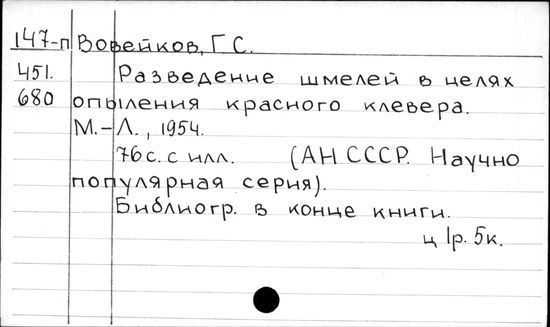 147-п Вовейков, Г. С.
451. Разведение шмелей в целях
680 опыления красного клевера.
М.-Л., 1954.
76 с. с илл. (АН СССР. Научно
популярная серия).
Библиогр. в конце книги.
ц 1р. 5к.